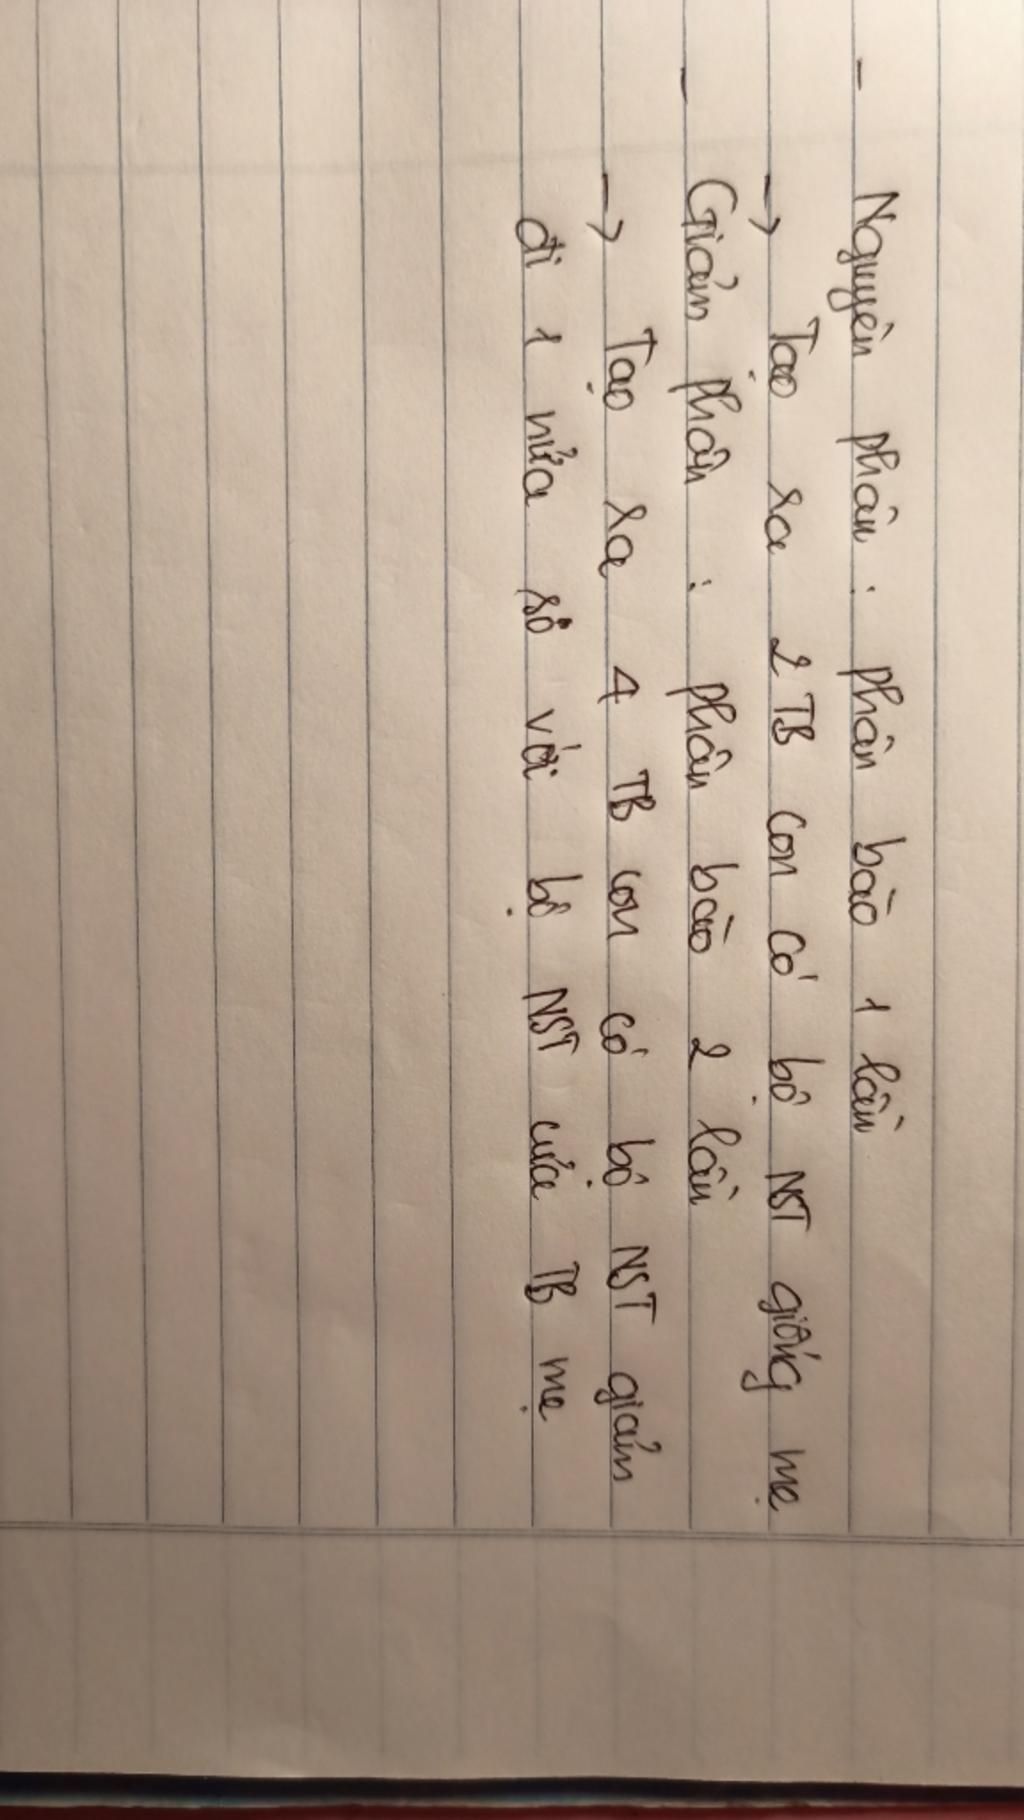 - Nguyên phân : phân bào 1 lần
→ Tạo ra 2 TB con có bộ NST giống mẹ
- Giảm phân : phân bào 2 lần
→ Tạo ra 4 TB con có bộ NST giảm
đi 1 nửa so với bộ NST của TB mẹ